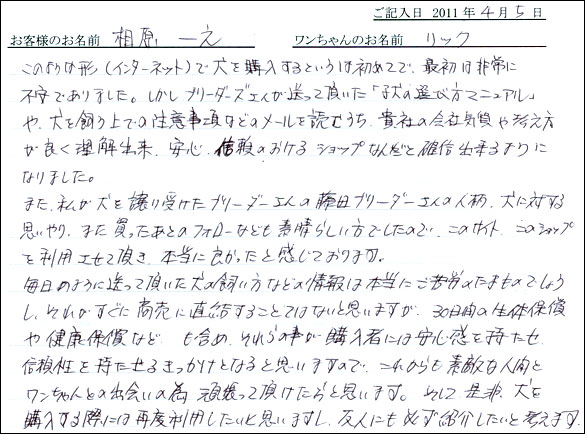 ご記入日 2011年4月5日
お客様のお名前 相原 一え ワンちゃんのお名前 リック
このような形(インターネット)で犬を購入するというは初めてで、最初は非常に
不安でありました。しかしブリーダーズさんが送って頂いた「子犬の選び方マニュアル」
や、犬を飼う上での注意事項などのメールを読むうち、貴社の会社気質や考え方
が良く理解出来、安心、信頼のおけるショップなんだと確信出来るように
なりました。
また、私が犬を譲り受けたブリーダーさんの ブリーダーさんの人柄、犬に対する
思いやり、また買ったあとのフォローなども素晴らしい方でしたので、このサイト、このショップ
を利用させて頂き、本当に良かったと感じております。
毎日のように送って頂いた犬の飼い方などの情報は本当にご苦労のたまものでしょう
し、それがすぐに商売に直結することではないと思いますが、30日間の生体保償
や健康保償など も含め、それらの事が購入者には安心感を持たせ、
信頼性を持たせるきっかけとなると思いますので、これからも素敵な人間と
ワンちゃんとの出会いの為 頑張って頂けたらと思います。そして是非、犬を
購入する際には再度利用したいと思いますし、友人にも必ず紹介したいと考えます。